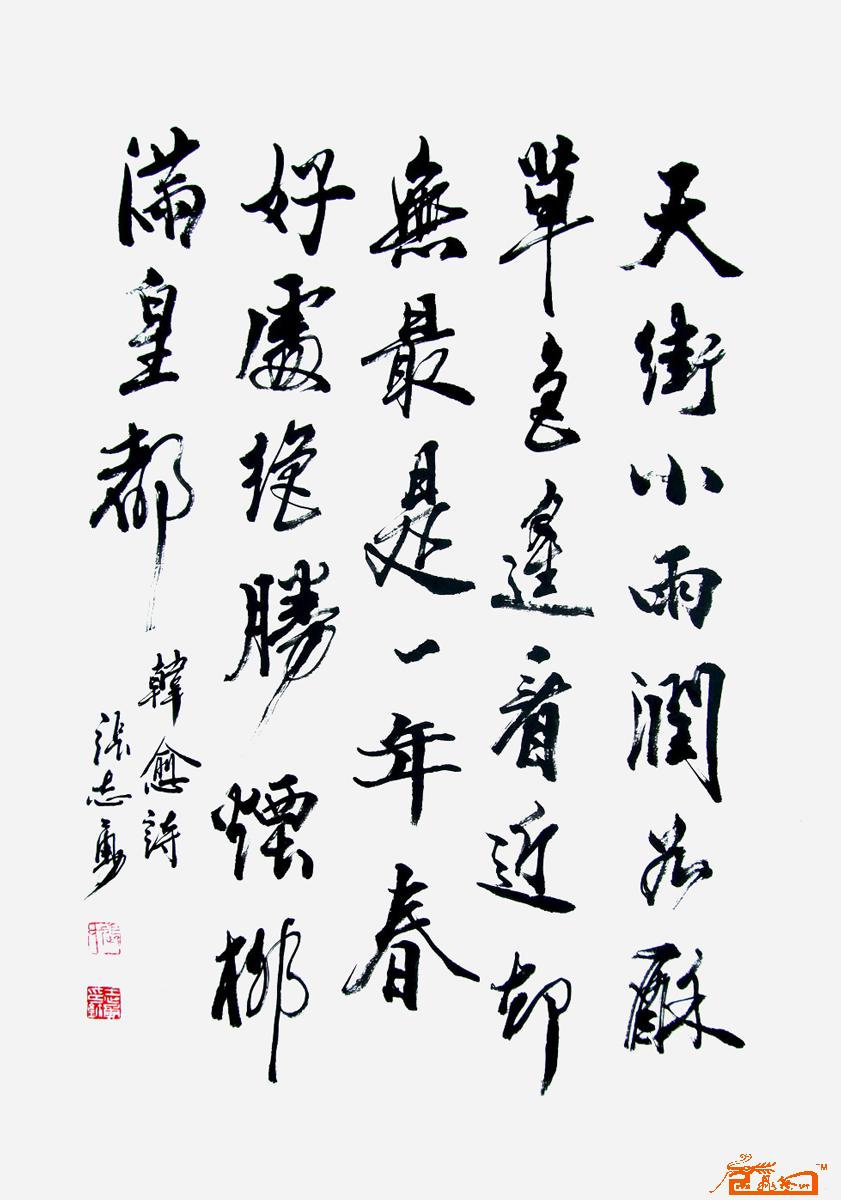 天街小雨潤如酥
草色遙看近却
無最是一年春
好處絶勝煙柳
滿皇都
韓愈詩
張志勇